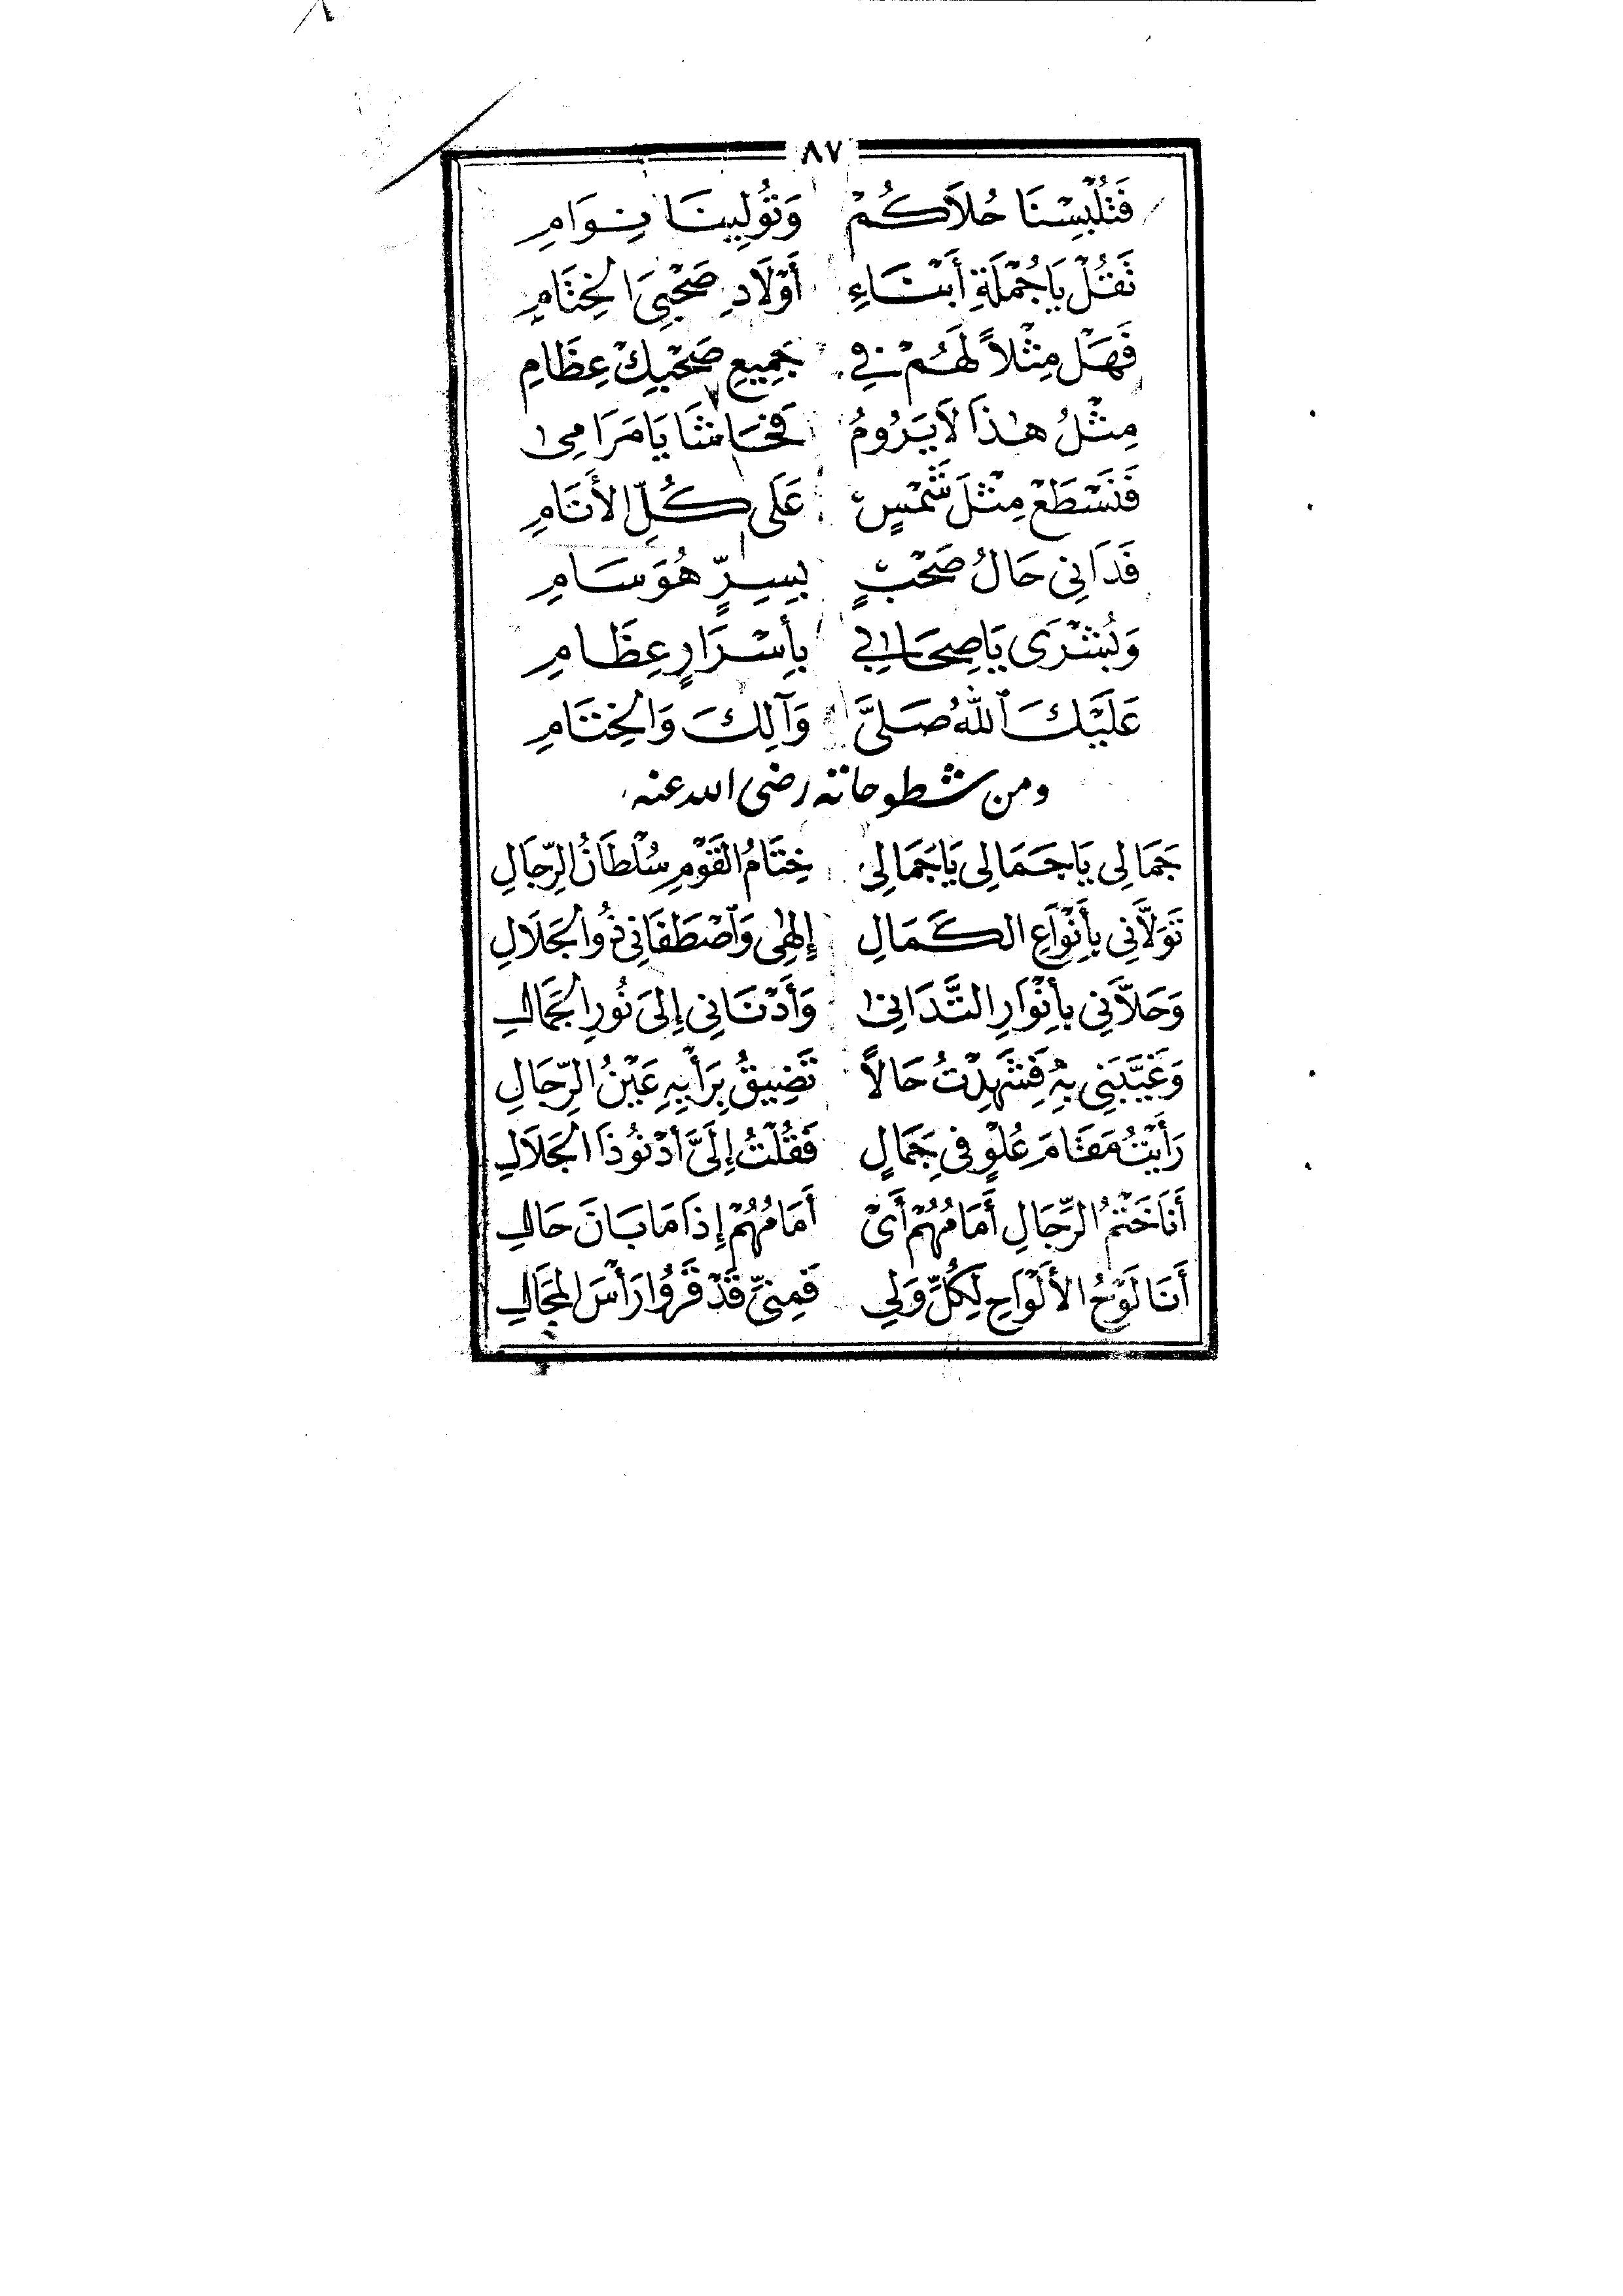 ٨٧
فَتُلْبِسْنَا حُلاَكُمْ وَتُولِينَا بِوَامِ
نَقُلْ يَا جُمْلَةِ أَبْنَاءِ أَوْلَادِ صَحْبِىَ الخِتَامِ
فَهَلْ مِثْلاً لَهُمْ فِي جَمِيعِ صَحْبِكْ عِظَامِ
مِثْلُ هٰذَا لَا يَرُومُ فَحَاشَا يَا مَرَامِى
فَنَسْطَعْ مِثْلَ شَمْسٍ عَلَى كُلِّ الأَنَامِ
فَدَانِي حَالُ صَحْبٍ بِسِرٍّ هُوَ سَامِ
وَبُشْرَى يَا صِحَابِي بِأَسْرَارٍ عِظَامِ
عَلَيْكَ ٱللهُ صَلَّى وَآلِكَ وَالخِتَامِ
ومن شطوحاته رضى الله عنه
جَمَالِي يَا جَمَالِى يَا جَمَالِى خِتَامُ القَوْمِ سُلْطَانُ الرِّجَالِ
تَوَلَّانِي بِأَنْوَاعِ الكَمَالِ إِلٰهِى وَٱصْطَفَانِى ذُو الجَلَالِ
وَحَلاَّنِي بِأَنْوَارِ التَّدَانِى وَأَدْنَانِي إِلَى نُورِ الجَمَالِ
وَغَيَّبَنِي بِهِ فَشَهِدْتُ حَالاً تَضِيقُ بِرَأْيِهِ عَيْنُ الرِّجَالِ
رَأَيْتُ مَقَامَ عُلْوٍ فِى جَمَالٍ فَقُلْتُ إِلَىَّ أدْنُو ذَا الجَلَالِ
أَنَا خَتْمُ الرِّجَالِ أَمَامُهُمْ أَىْ أَمَامُهُمْ إِذَا مَا بَانَ حَالِ
أَنَا لَوْحُ الأَلْوَاحِ لِكُلِّ وَلِي فَمِنِّى قَدْ قَرَوُا رَأْسَ المَجَالِ